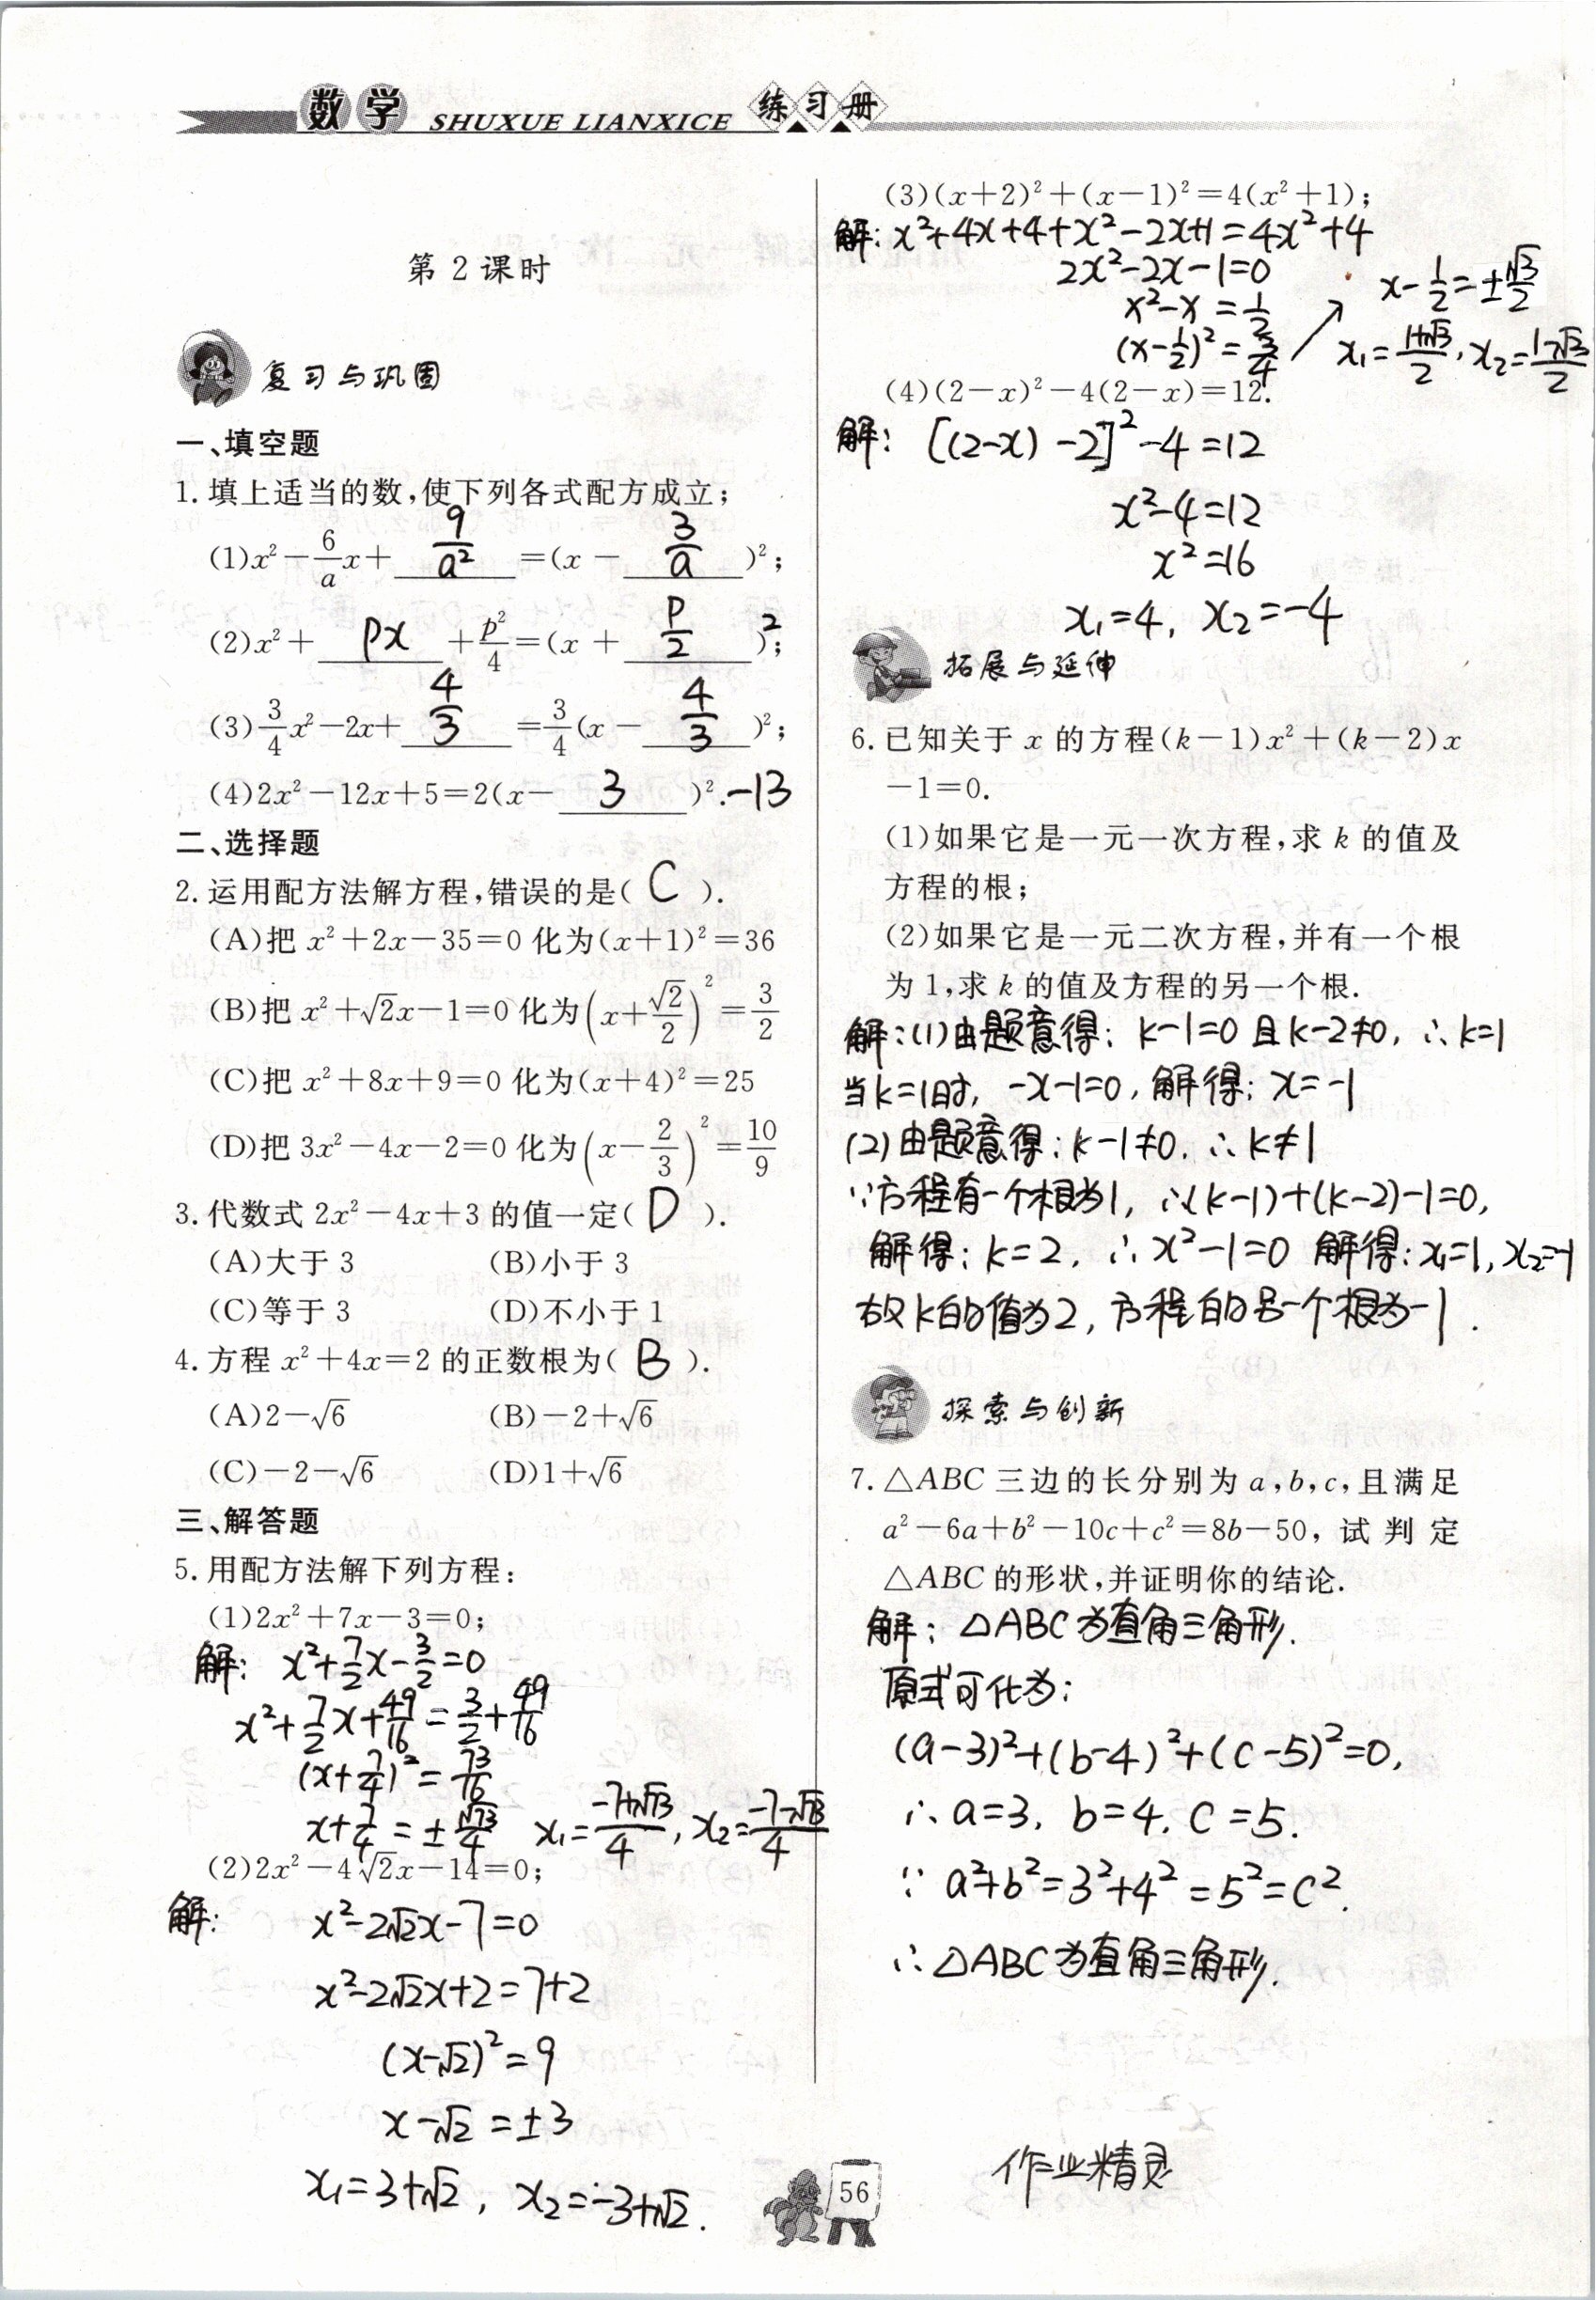 数学 SHUXUE LIANXICE 练习册
第 2 课时
复习与巩固
一、填空题
1. 填上适当的数,使下列各式配方成立;
(1)x²－6/a x＋ 9/a² ＝(x － 3/a )²;
(2)x²＋ px ＋p²/4＝(x ＋ p/2 )²;
(3)3/4x²－2x＋ 4/3 ＝3/4(x － 4/3 )²;
(4)2x²－12x＋5＝2(x－ 3 )².-13
二、选择题
2. 运用配方法解方程,错误的是( C ).
(A)把 x²＋2x－35＝0 化为(x＋1)²＝36
(B)把 x²＋√2x－1＝0 化为(x＋√2/2)²＝3/2
(C)把 x²＋8x＋9＝0 化为(x＋4)²＝25
(D)把 3x²－4x－2＝0 化为(x－2/3)²＝10/9
3. 代数式 2x²－4x＋3 的值一定( D ).
(A)大于 3 (B)小于 3
(C)等于 3 (D)不小于 1
4. 方程 x²＋4x＝2 的正数根为( B ).
(A)2－√6 (B)－2＋√6
(C)－2－√6 (D)1＋√6
三、解答题
5. 用配方法解下列方程:
(1)2x²＋7x－3＝0;
解: x²+7/2x-3/2=0
x²+7/2x+49/16=3/2+49/16
(x+7/4)²=73/16
x+7/4=±√73/4 x₁=-7+√73/4, x₂=-7-√73/4
(2)2x²－4√2x－14＝0;
解: x²-2√2x-7=0
x²-2√2x+2=7+2
(x-√2)²=9
x-√2=±3
x₁=3+√2, x₂=-3+√2.
(3)(x＋2)²＋(x－1)²＝4(x²＋1);
解: x²+4x+4+x²-2x+1=4x²+4
2x²-2x-1=0
x²-x=1/2
(x-1/2)²=3/4 ↗
x-1/2=±√3/2
x₁=1+√3/2, x₂=1-√3/2
(4)(2－x)²－4(2－x)＝12.
解: [(2-x)-2]²-4=12
x²-4=12
x²=16
x₁=4, x₂=-4
拓展与延伸
6. 已知关于 x 的方程(k－1)x²＋(k－2)x
－1＝0.
(1)如果它是一元一次方程,求 k 的值及
方程的根;
(2)如果它是一元二次方程,并有一个根
为 1,求 k 的值及方程的另一个根.
解:(1)由题意得: k-1=0 且 k-2≠0, ∴k=1
当k=1时, -x-1=0, 解得: x=-1
(2)由题意得: k-1≠0. ∴k≠1
∵方程有一个根为1, ∴(k-1)+(k-2)-1=0,
解得: k=2, ∴x²-1=0 解得: x₁=1, x₂=-1
故k的值为2, 方程的另一个根为-1.
探索与创新
7. △ABC 三边的长分别为 a,b,c,且满足
a²－6a＋b²－10c＋c²＝8b－50, 试判定
△ABC 的形状,并证明你的结论.
解: △ABC为直角三角形.
原式可化为:
(a-3)²+(b-4)²+(c-5)²=0,
∴a=3, b=4, c=5.
∵a²+b²=3²+4²=5²=c².
∴△ABC为直角三角形.
作业精灵
56